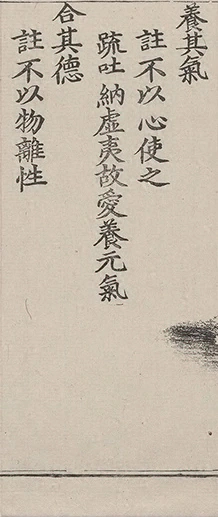 養其氣
註不以心使之
疏吐納虛夷故愛養元氣
合其德
註不以物離性